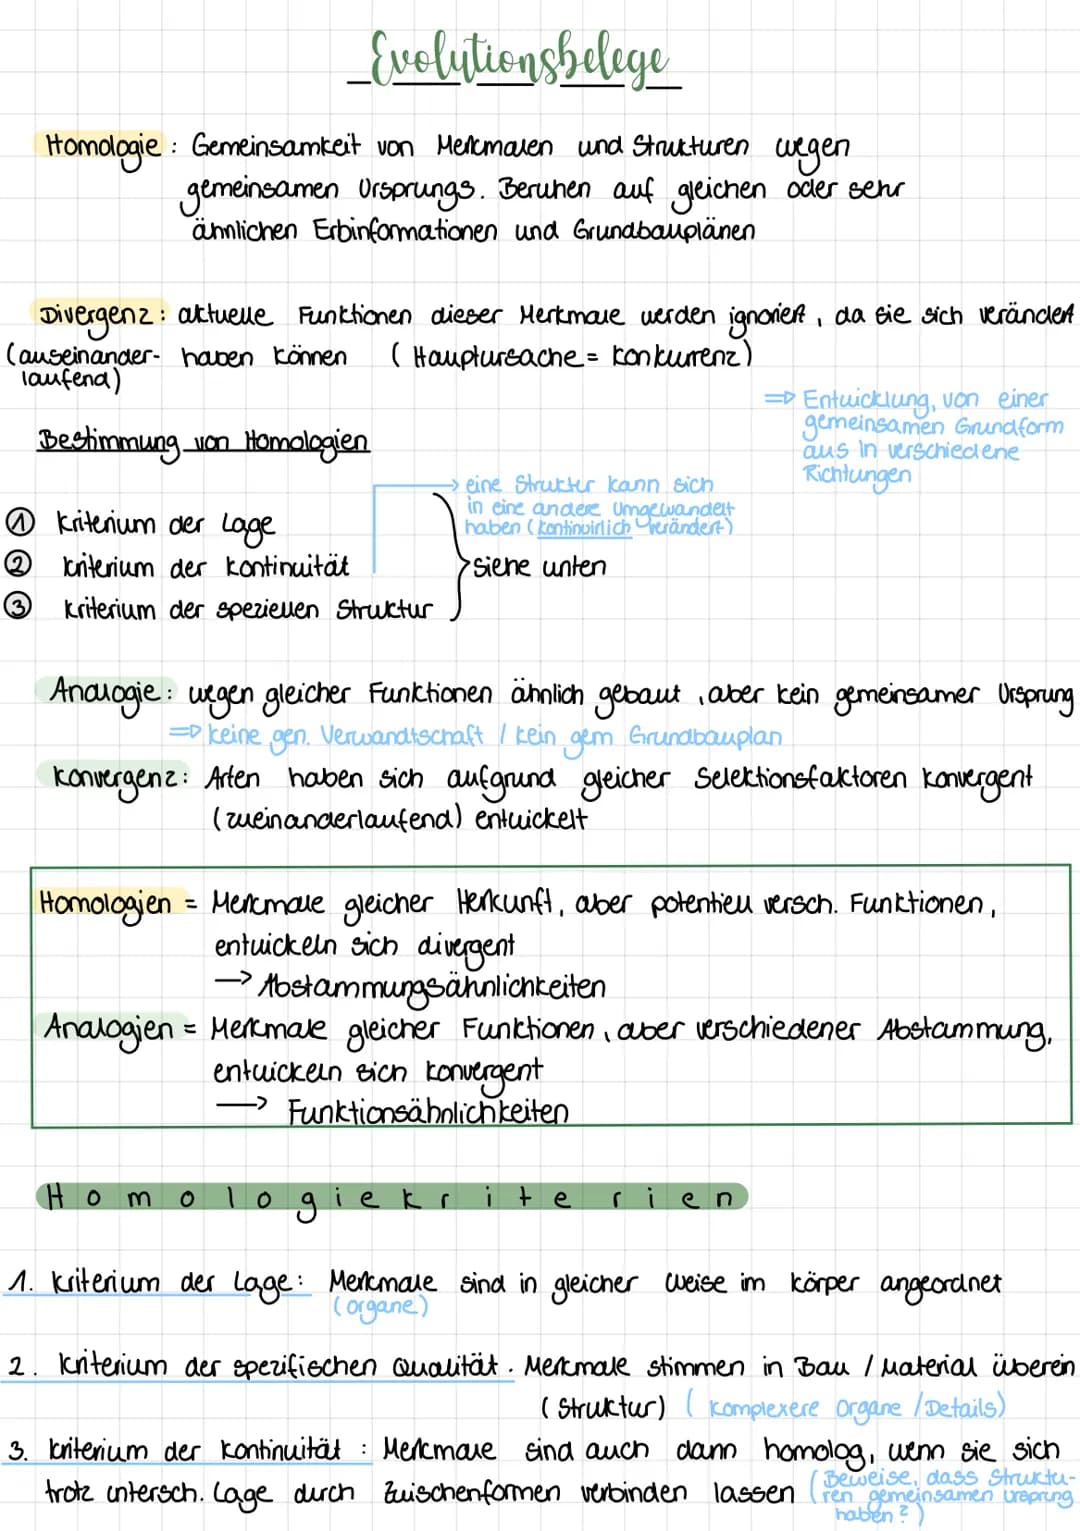 Evolutionsbelege
Homologie: Gemeinsamkeit von Merkmalen und Strukturen wegen
gemeinsamen Ursprungs. Beruhen auf gleichen oder sehr
ähnlichen Erbinformationen und Grundbauplänen
Divergenz: aktuelle Funktionen dieser Merkmale werden ignoriert, da sie sich verändert
(auseinander- haben können (Hauptursache = Konkurrenz)
laufend)
=> Entwicklung, von einer
gemeinsamen Grundform
aus in verschiedene
Richtungen
Bestimmung von Homologien
→ eine Struktur kann sich
in eine andere umgewandelt
haben (kontinuirlich verändert)
① Kriterium der Lage
② Kriterium der Kontinuität
siehe unten
③ Kriterium der speziellen Struktur
Analogie: wegen gleicher Funktionen ähnlich gebaut, aber kein gemeinsamer Ursprung
=> keine gen. Verwandtschaft / kein gem Grundbauplan
Konvergenz: Arten haben sich aufgrund gleicher Selektionsfaktoren konvergent
(zueinanderlaufend) entwickelt
Homologien = Merkmale gleicher Herkunft, aber potentiell versch. Funktionen,
entwickeln sich divergent
→ Abstammungsähnlichkeiten
Analogien = Merkmale gleicher Funktionen, aber verschiedener Abstammung,
entwickeln sich konvergent
→ Funktionsähnlichkeiten
Homologiekriterien
1. Kriterium der Lage: Merkmale sind in gleicher Weise im Körper angeordnet
(organe)
2. Kriterium der spezifischen Qualität. Merkmale stimmen in Bau / Material überein
(Struktur) (komplexere Organe / Details)
3. Kriterium der Kontinuität: Merkmale sind auch dann homolog, wenn sie sich
trotz untersch. Lage durch Zwischenformen verbinden lassen (Beweise, dass Struktu-
ren gemeinsamen Ursprung
haben?)